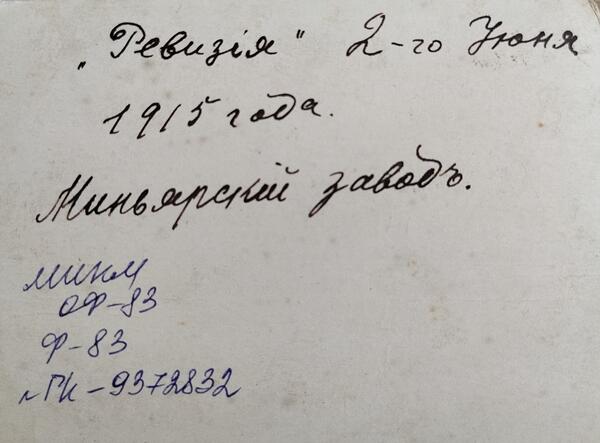 „Ревизія" 2-го Июня
1915 года.
Миньярскій заводъ.
МИКМ
ОФ-83
Ф-83
ГК-9372832